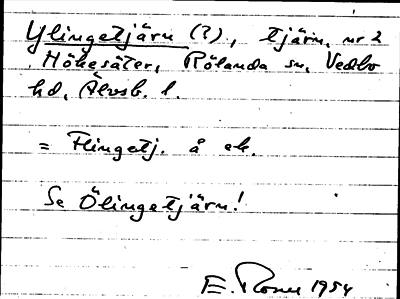 Ylingetjärn (?), tjärn, nr 2
Hökesäter, Rölanda sn, Vedbo
hd, Älvsb. l.
= Flingetj. å ek.
Se Ölingetjärn!
E. Rosell 1954